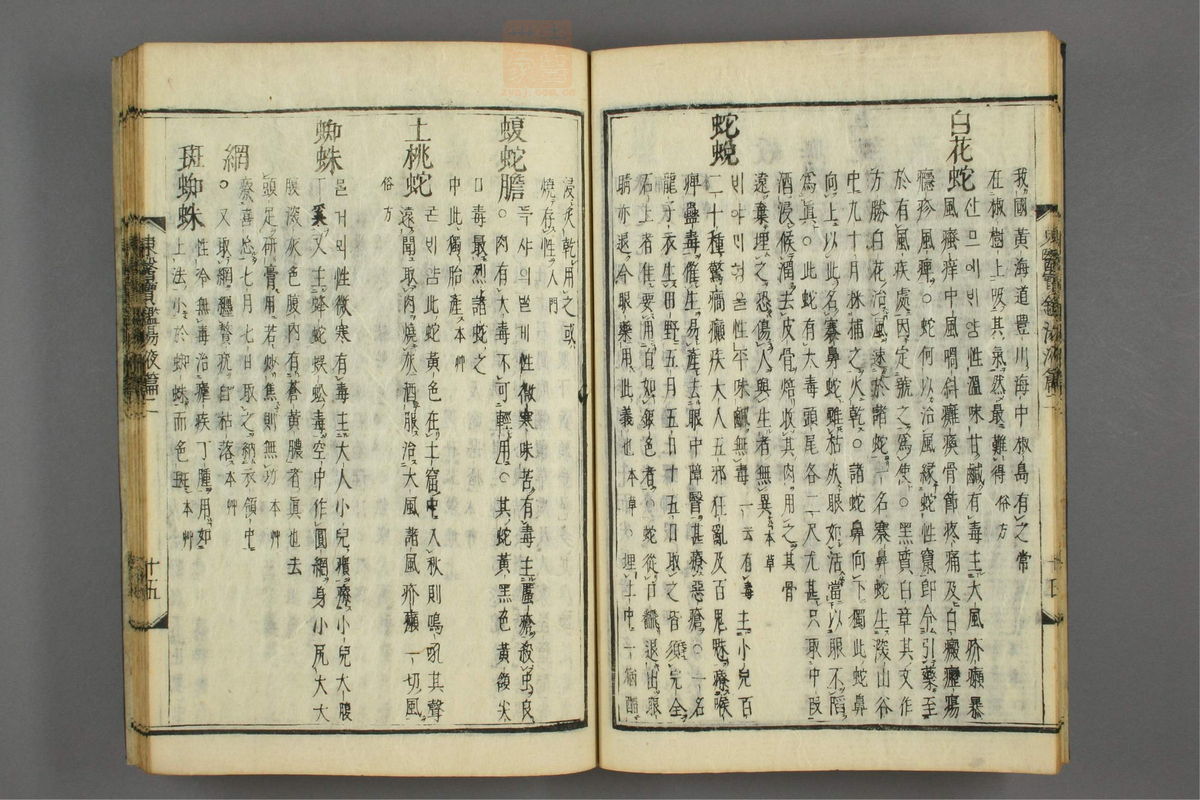 我國黃海道豊川海中椒島有之常
在椒樹上吸其氣然最難得 俗方
白花蛇 산므애비얌性溫味甘鹹有毒主大風疥癩暴
風瘙痒中風喎斜癱瘓骨節疼痛及白癜癧瘍
癮疹風痺○蛇何以治風緣蛇性竄卽令引藥至
於有風疾處因定號之爲使○黑質白章其文作
方勝白花治風速於諸蛇一名褰鼻蛇生深山谷
中九十月採捕之火乾○諸蛇鼻向下獨此蛇鼻
向上以此名褰鼻蛇雖枯死眼如活當以眼不陷
爲眞○此蛇有大毒頭尾各一二尺尤甚只取中段
酒浸候潤去皮骨焙收其肉用之其骨
遠棄埋之恐傷人與生者無異 本草
蛇蛻 性平味鹹無毒一云有毒主小兒百
二十種驚癎癲疾大人五邪狂亂及百鬼魅療喉
痺蠱毒催生易產去眼中障瞖甚療惡瘡○一名
龍子衣生田野五月五日十五日取之皆須完全
石上者佳要用白如銀色者○蛇從口飜退出眼
睛亦退今眼藥用此義也 本草 ○埋土中一宿醋
東醫寶鑑湯液篇二
浸炙乾用之或
燒存性 入門
蝮蛇膽 독샤의열이性微寒味苦有毒主䘌瘡殺虫良
○肉有大毒不可輕用○其蛇黃黑色黃頷尖
口毒最烈諸蛇之
中此獨胎產 本艸
土桃蛇 굳비얌此蛇黃色在土窟中入秋則鳴吼其聲
遠聞取肉燒灰酒服治大風諸風疥癩一切風
俗方
蜘蛛 거믜性微寒有毒主大人小兒㿗疝小兒大腹
丁奚又主蜂蛇蜈蚣毒空中作圓網身小尻大大
腹深灰色腹內有蒼黃膿者眞也去
頭足硏膏用若炒焦則無功 本艸
網 療喜忘七月七日取之納衣領中
○又取網纏贅疣自枯落 本艸
斑蜘蛛 性冷無毒治瘧疾丁腫用如
上法小於蜘蛛而色斑 本艸
東醫寶鑑湯液篇二 十五